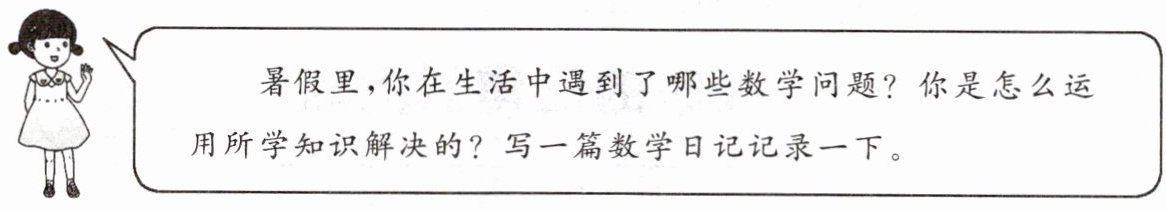 暑假里,你在生活中遇到了哪些数学问题?你是怎么运
用所学知识解决的?写一篇数学日记记录一下。